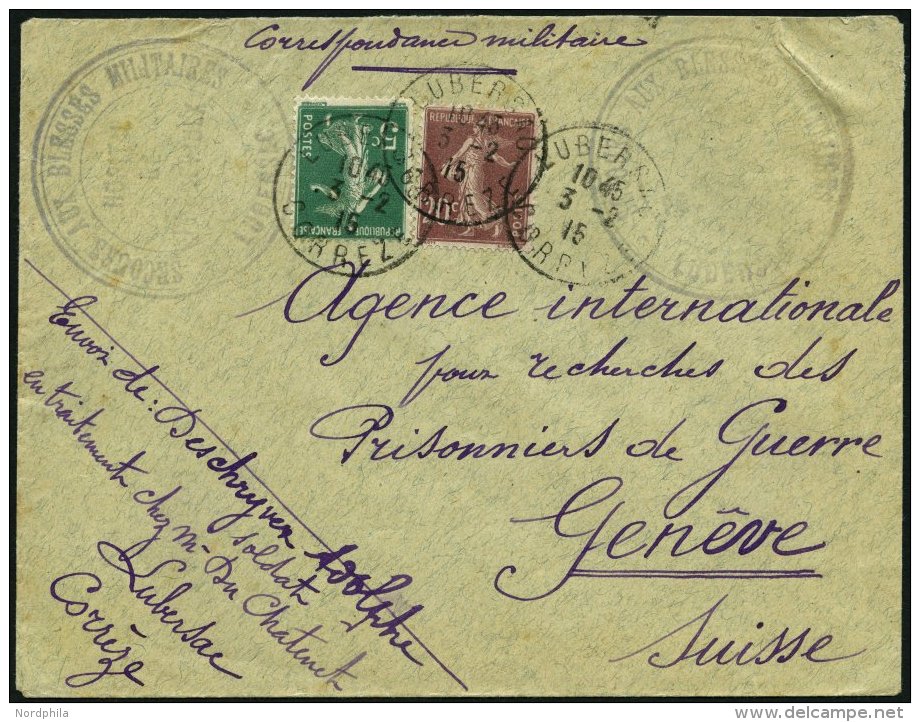 Correspondance militaire
SECOURS AUX BLESSÉS MILITAIRES
LUBERSAC
AUX BLESSÉS
LUBERSAC
10 45
3 -2
15
CORREZE
LUBERSAC
10 45
3 -2
15
CORREZE
LUBERSAC
10 45
3 -2
15
CORREZE
5c
POSTES
REPUBLIQUE FRANÇAISE
REPUBLIQUE FRANÇAISE
10c
POSTES
Agence internationale
pour recherches des
Prisonniers de Guerre
Genêve
Suisse
Envoi de: Deschryver Adolphe
soldat
en traitement chez M- Du Chatenet
Lubersac
Corrèze
Nordphila
delcampe.net